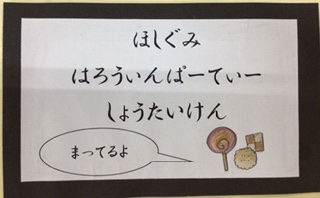 ほしぐみ
はろうぃんぱーてぃー
しょうたいけん
まってるよ